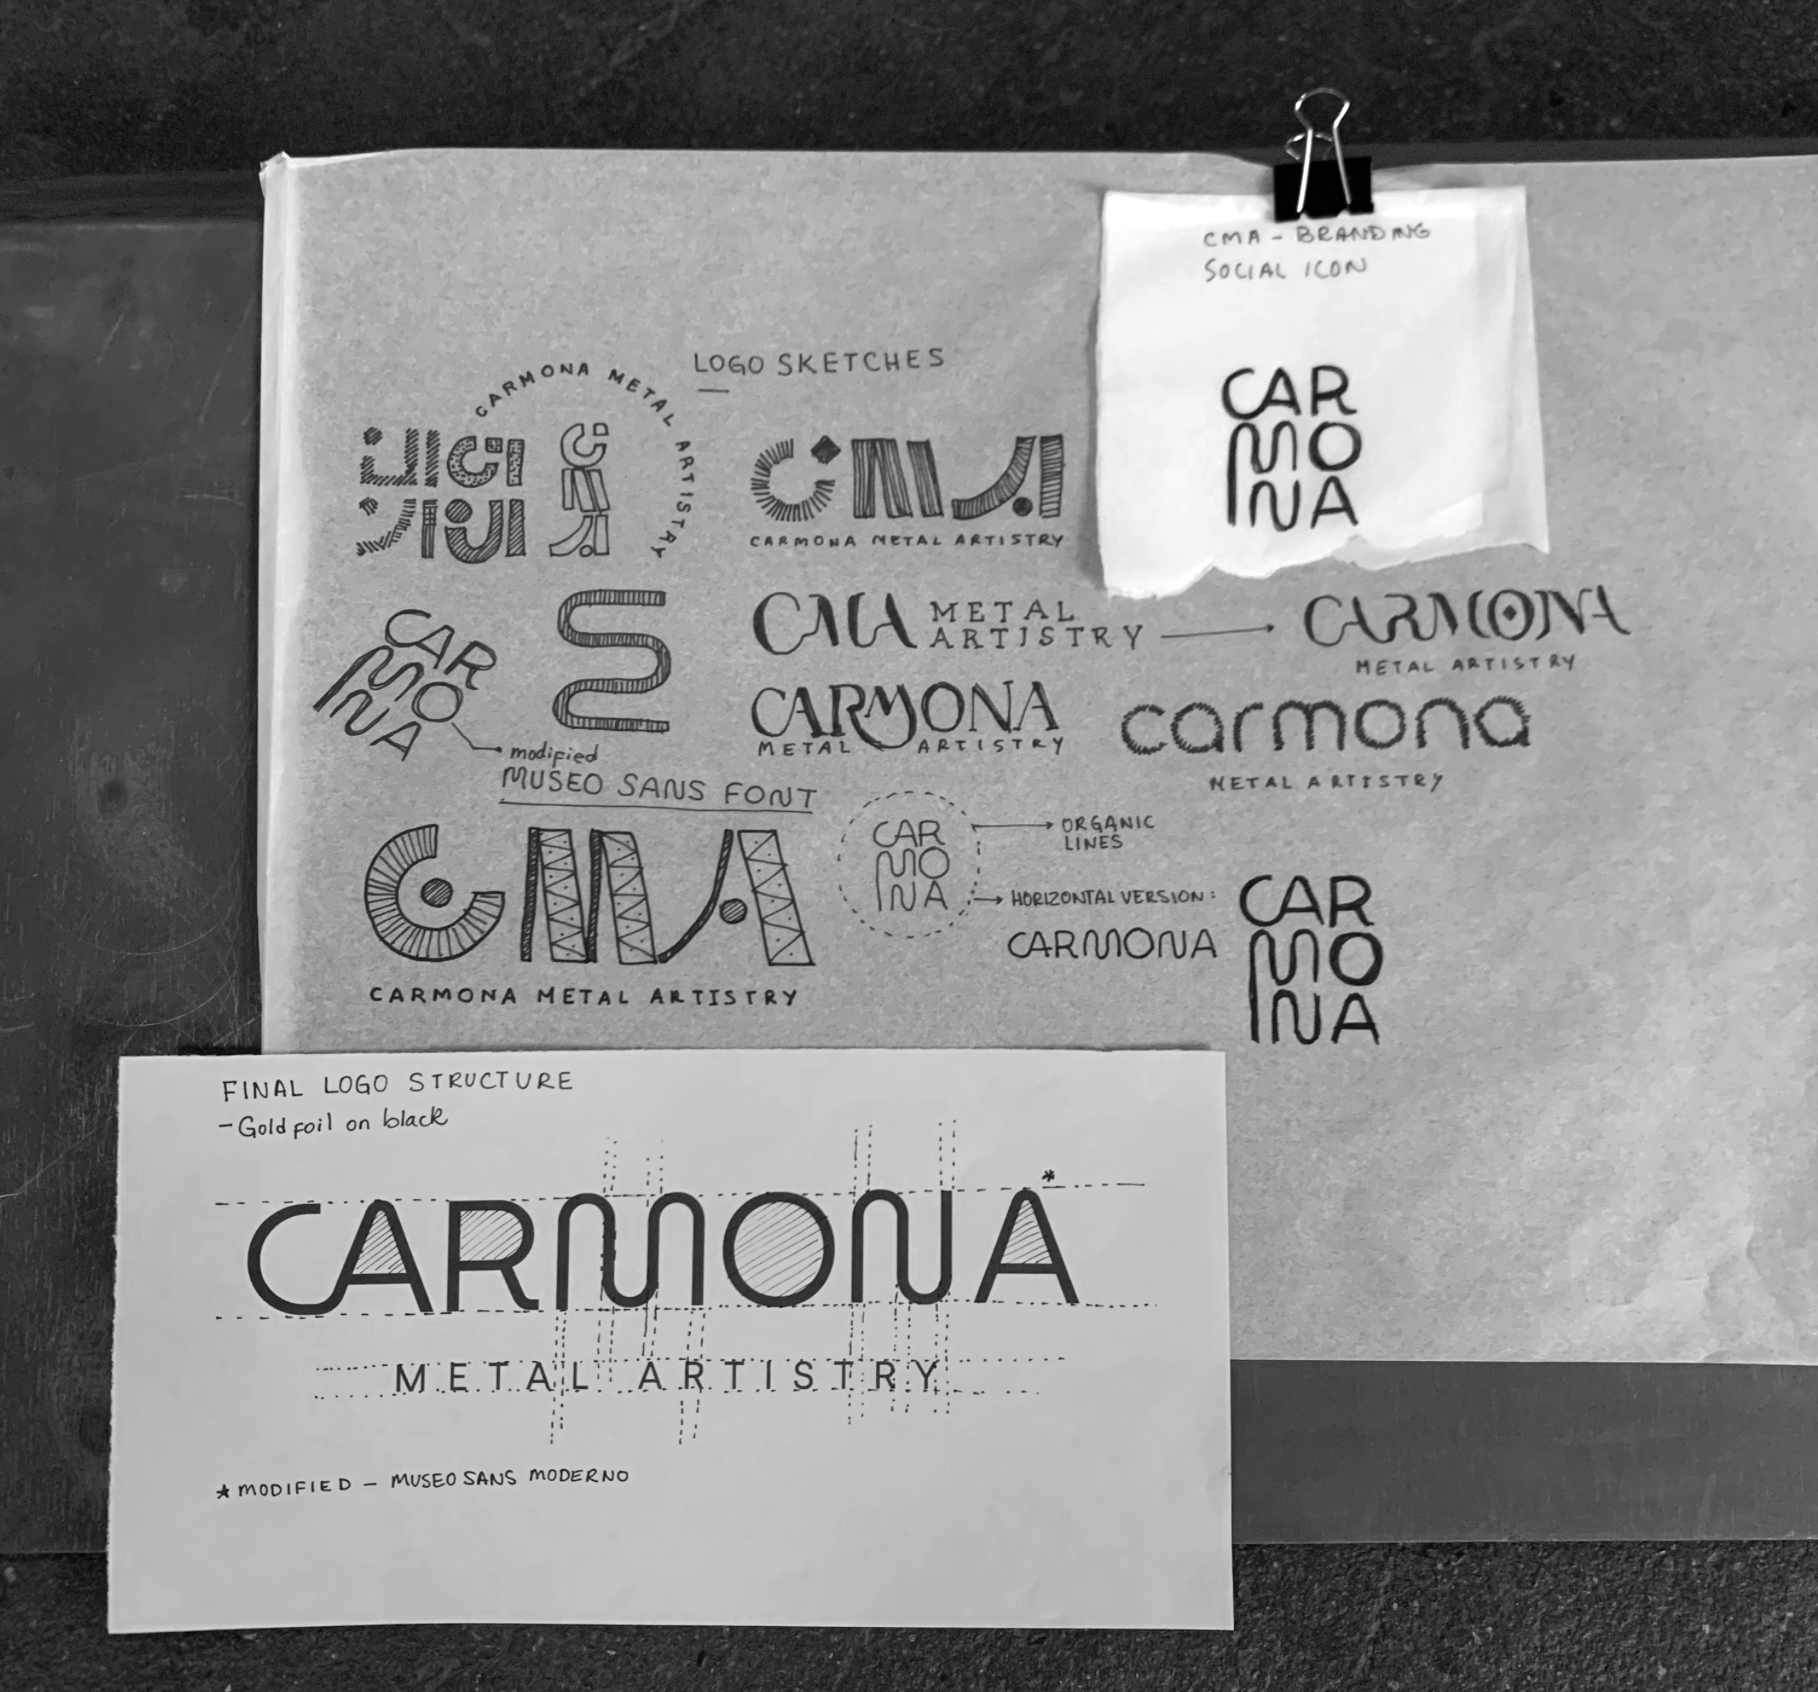 CMA - BRANDING
SOCIAL ICON
CAR
MO
NA
LOGO SKETCHES
CARMONA METAL ARTISTRY
CMA
CMA
CARMONA METAL ARTISTRY
CMA METAL
ARTISTRY
CARMONA
METAL ARTISTRY
CAR
MO
NA
modified
MUSEO SANS FONT
CARMONA
METAL ARTISTRY
carmona
METAL ARTISTRY
CMA
CARMONA METAL ARTISTRY
CAR
MO
NA
ORGANIC
LINES
HORIZONTAL VERSION:
CARMONA
CAR
MO
NA
FINAL LOGO STRUCTURE
- Gold foil on black
CARMONA*
METAL ARTISTRY
* MODIFIED - MUSEO SANS MODERNO